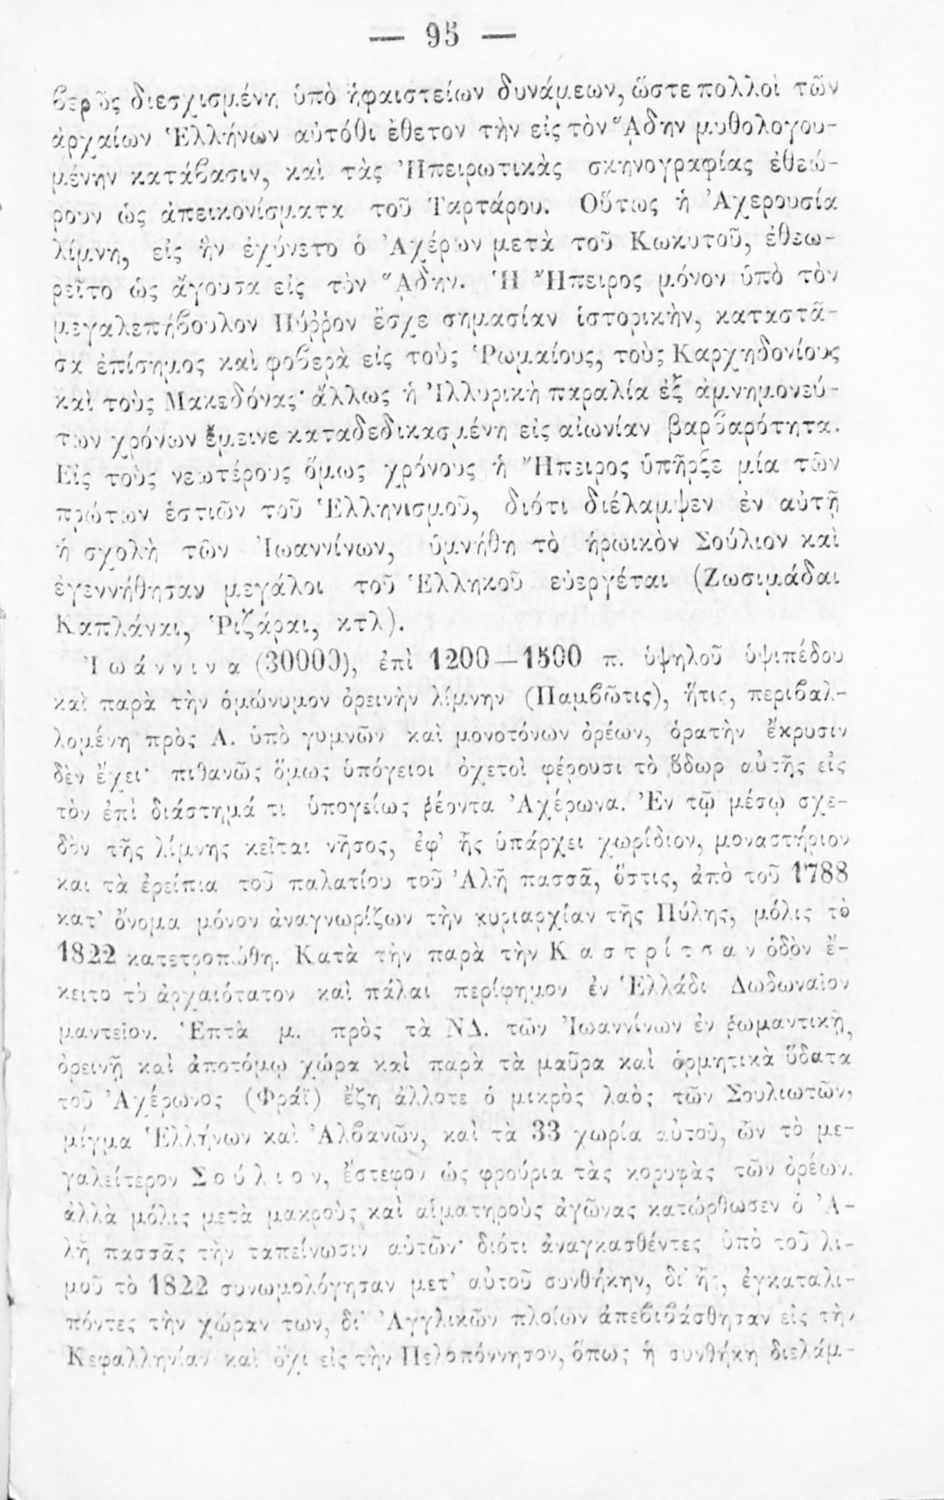 — 95 —
βερῶς διεσχισμένη ὑπὸ ἡφαιστείων δυνάμεων, ὥστε πολλοὶ τῶν
ἀρχαίων Ἑλλήνων αὐτόθι ἔθετον τὴν εἰς τὸν ᾍδην μυθολογου-
μένην κατάβασιν, καὶ τὰς Ἠπειρωτικὰς σκηνογραφίας ἐθεώ-
ρουν ὡς ἀπεικονίσματα τοῦ Ταρτάρου. Οὕτως ἡ Ἀχερουσία
λίμνη, εἰς ἣν ἐχύνετο ὁ Ἀχέρων μετὰ τοῦ Κωκυτοῦ, ἐθεω-
ρεῖτο ὡς ἄγουσα εἰς τὸν ᾍδην. Ἡ Ἤπειρος μόνον ὑπὸ τὸν
μεγαλεπήβουλον Πύῤῥον ἔσχε σημασίαν ἱστορικὴν, καταστᾶ-
σα ἐπίσημος καὶ φοβερὰ εἰς τοὺς Ῥωμαίους, τοὺς Καρχηδονίους
καὶ τοὺς Μακεδόνας· ἄλλως ἡ Ἰλλυρικὴ παραλία ἐξ ἀμνημονεύ-
των χρόνων ἔμεινε καταδεδικασμένη εἰς αἰωνίαν βαρβαρότητα.
Εἰς τοὺς νεωτέρους ὅμως χρόνους ἡ Ἤπειρος ὑπῆρξε μία τῶν
πρώτων ἑστιῶν τοῦ Ἑλληνισμοῦ, διότι διέλαμψεν ἐν αὐτῇ
ἡ σχολὴ τῶν Ἰωαννίνων, ὑμνήθη τὸ ἡρωικὸν Σούλιον καὶ
ἐγεννήθησαν μεγάλοι τοῦ Ἑλληκοῦ εὐεργέται (Ζωσιμάδαι
Καπλάναι, Ῥιζάραι, κτλ).
Ἰωάννινα (30000), ἐπὶ 1200—1500 π. ὑψηλοῦ ὑψιπέδου
καὶ παρὰ τὴν ὁμώνυμον ὀρεινὴν λίμνην (Παμβῶτις), ἥτις, περιβαλ-
λομένη πρὸς Α. ὑπὸ γυμνῶν καὶ μονοτόνων ὀρέων, ὁρατὴν ἔκρυσιν
δὲν ἔχει· πιθανῶς ὅμως ὑπόγειοι ὀχετοὶ φέρουσι τὸ ὕδωρ αὐτῆς εἰς
τὸν ἐπὶ διάστημά τι ὑπογείως ῥέοντα Ἀχέρωνα. Ἐν τῷ μέσῳ σχε-
δὸν τῆς λίμνης κεῖται νῆσος, ἐφ' ἧς ὑπάρχει χωρίδιον, μοναστήριον
και τὰ ἐρείπια τοῦ παλατίου τοῦ Ἀλῆ πασσᾶ, ὅστις, ἀπὸ τοῦ 1788
κατ' ὄνομα μόνον ἀναγνωρίζων τὴν κυριαρχίαν τῆς Πύλης, μόλις τὸ
1822 κατετροπώθη. Κατὰ τὴν παρὰ τὴν Καστρίτσαν ὁδὸν ἔ-
κειτο τὸ ἀρχαιότατον καὶ πάλαι περίφημον ἐν Ἑλλάδι Δωδωναῖον
μαντεῖον. Ἑπτὰ μ. πρὸς τὰ ΝΔ. τῶν Ἰωαννίνων ἐν ῥωμαντικῇ,
ὀρεινῇ καὶ ἀποτόμῳ χώρᾳ καὶ παρὰ τὰ μαῦρα καὶ ὁρμητικὰ ὕδατα
τοῦ Ἀχέρωνος (Φράϊ) ἔζη ἄλλοτε ὁ μικρὸς λαὸς τῶν Σουλιωτῶν,
μίγμα Ἑλλήνων καὶ Ἀλβανῶν, καὶ τὰ 33 χωρία αὐτοῦ, ὧν τὸ με-
γαλείτερον Σούλιον, ἔστεφον ὡς φρούρια τὰς κορυφὰς τῶν ὀρέων.
ἀλλὰ μόλις μετὰ μακροὺς καὶ αἱματηροὺς ἀγῶνας κατώρθωσεν ὁ Ἀ-
λῆ πασσᾶς τὴν ταπείνωσιν αὐτῶν· διότι ἀναγκασθέντες ὑπὸ τοῦ λι-
μοῦ τὸ 1822 συνωμολόγησαν μετ' αὐτοῦ συνθήκην, δι' ἧς, ἐγκαταλι-
πόντες τὴν χώραν των, δι' Ἀγγλικῶν πλοίων ἀπεβιβάσθησαν εἰς τὴν
Κεφαλληνίαν καὶ ὄχι εἰς τὴν Πελοπόννησον, ὅπως ἡ συνθήκη διελάμ-